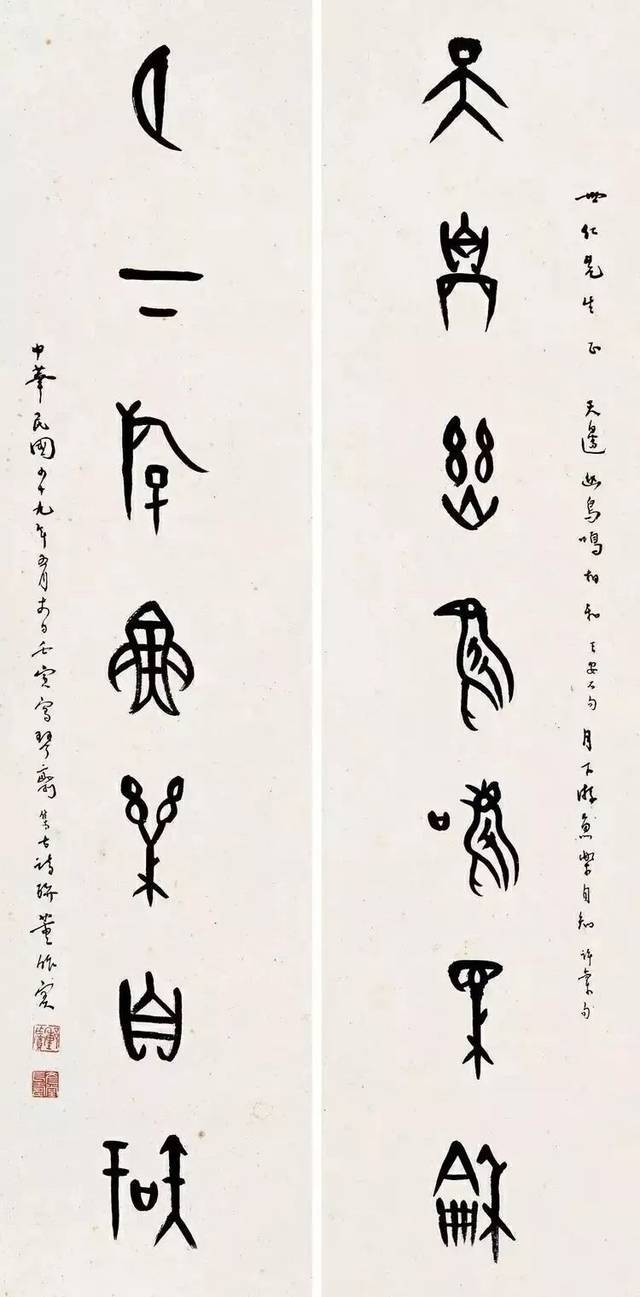 世仁先生正 天邊幽鳥鳴相和 王安石句 月下游魚樂自知 許棠句
天邊幽鳥鳴相和
月下游魚樂自知
中華民國四十九年五月十四日壬寅寫琴齋集古詩聯董作賓